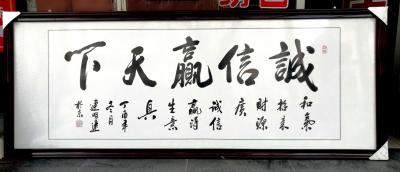 誠信贏天下
和氣
招來
財源
廣
誠信
贏得
生意
興
丁酉年
冬月